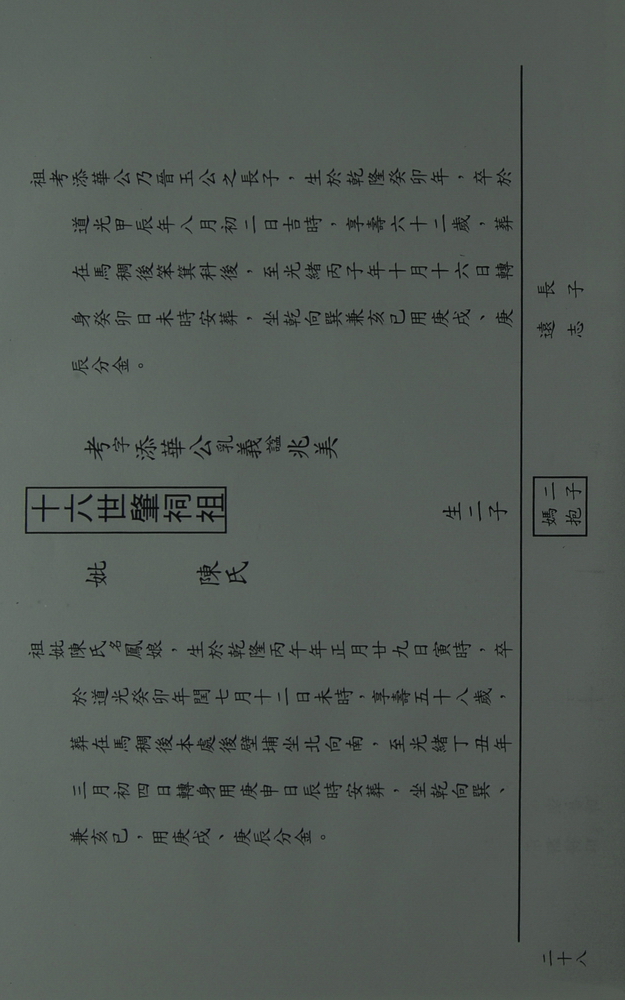 祖考添華公乃晉玉公之長子，生於乾隆癸卯年，卒於
道光甲辰年八月初二日吉時，享壽六十二歲，葬
在馬稠後笨箕科後，至光緒丙子年十月十六日轉
身癸卯日未時安葬，坐乾向巽兼亥巳用庚戌、庚
辰分金。
考字添華公乳義諡兆美
十六世肇祠祖
妣 陳氏
生二子
長子
遠志
二子
媽抱
祖妣陳氏名鳳娘，生於乾隆丙午年正月廿九日寅時，卒
於道光癸卯年閏七月十二日未時，享壽五十八歲，
葬在馬稠後本處後壁埔坐北向南，至光緒丁丑年
三月初四日轉身用庚申日辰時安葬，坐乾向巽、
兼亥巳，用庚戌、庚辰分金。
二十八